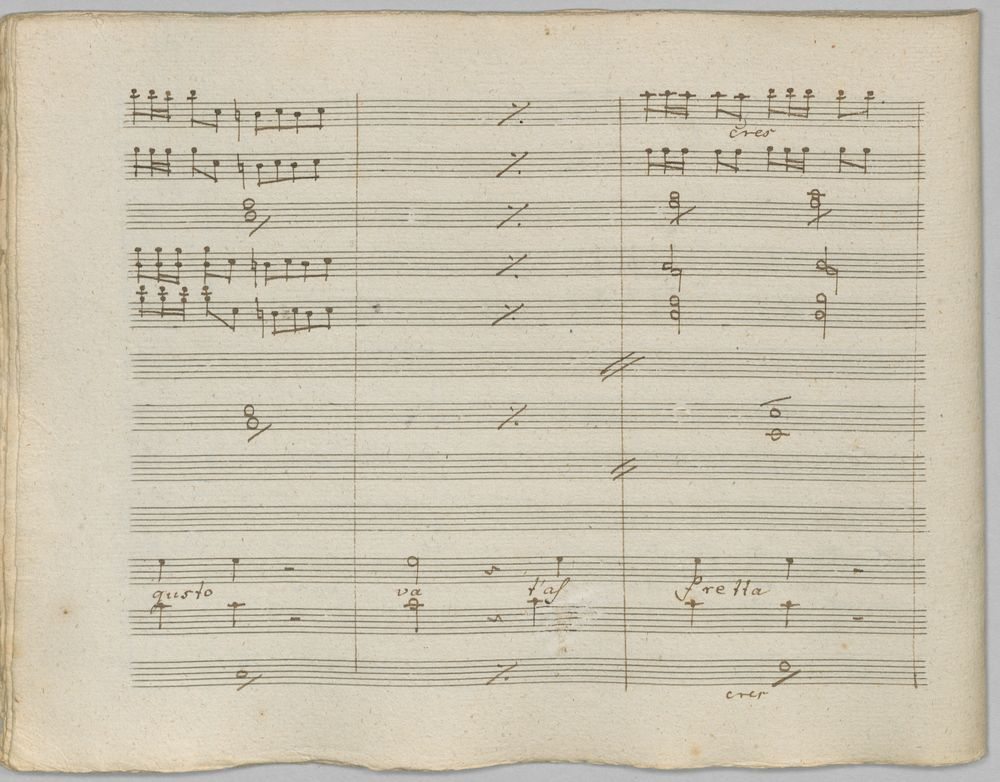 cres
gusto va t'af fretta
cres